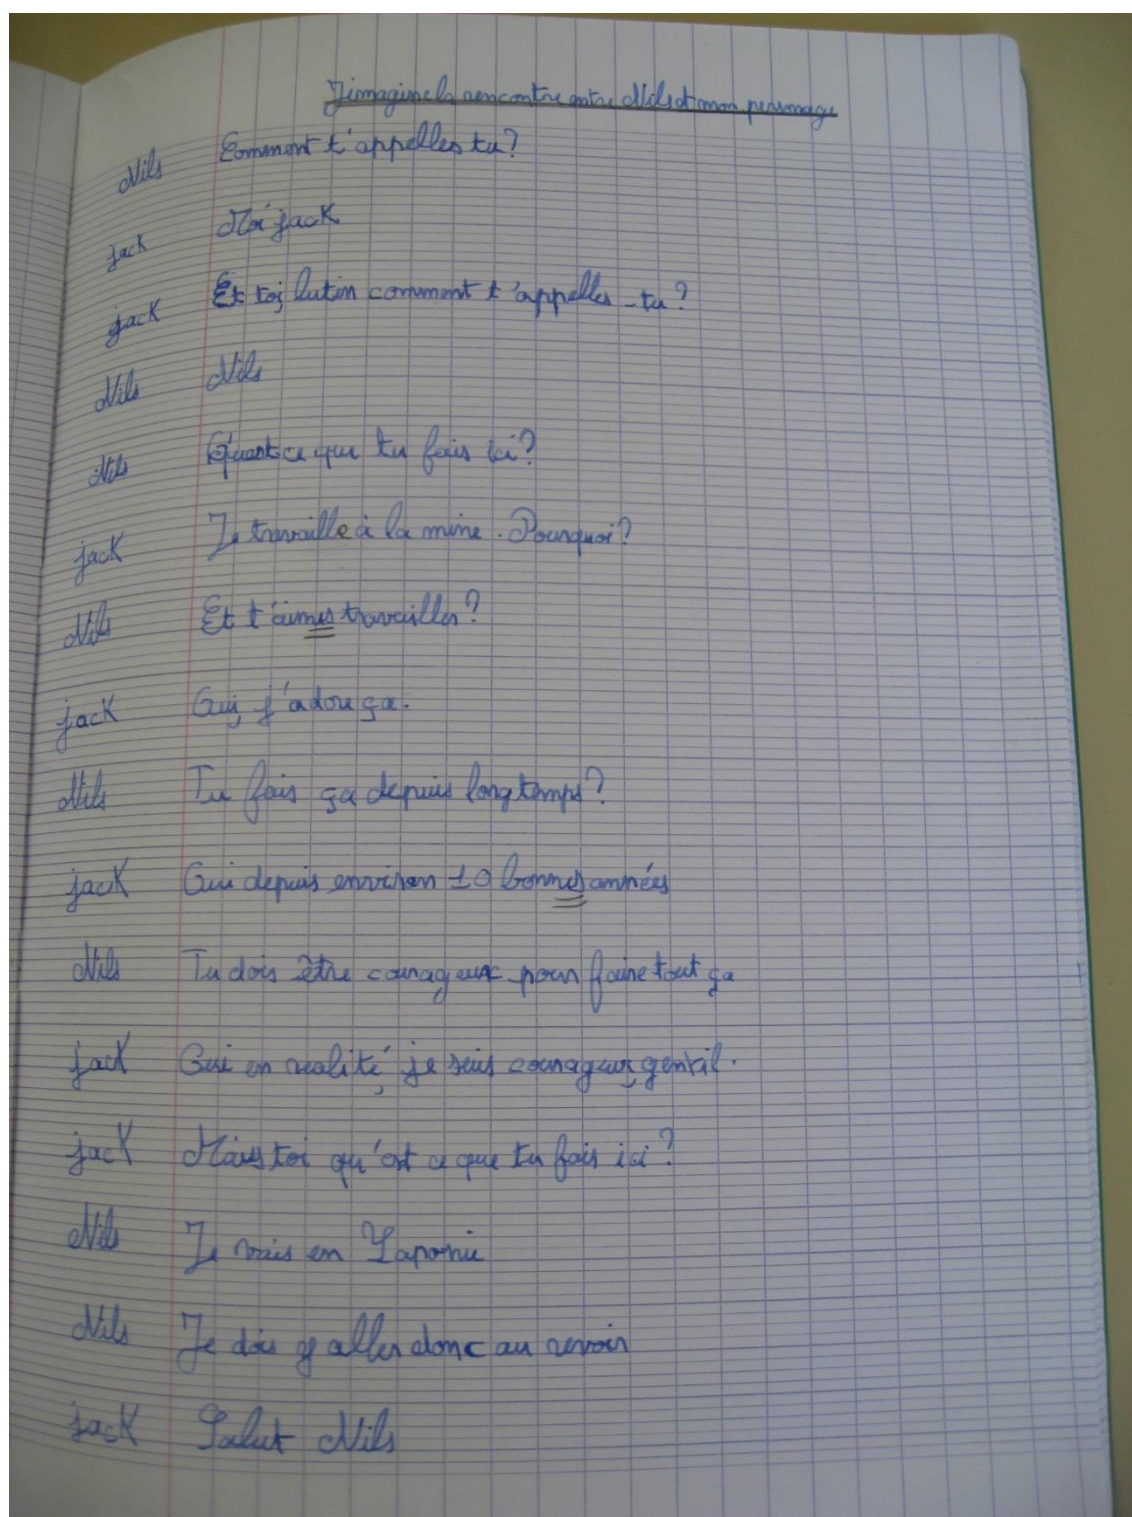 J'imagine la rencontre entre Nils et mon personnage
Nils Comment t'appelles tu?
jack Moi jack
jack Et toi, lutin comment t'appelles-tu?
Nils Nils
Nils Qu'est ce que tu fais ici?
jack Je travaille à la mine. Pourquoi?
Nils Et t'aimes travailler?
jack Oui, j'adore ça.
Nils Tu fais ça depuis longtemps?
jack Oui depuis environ 10 bonnes années
Nils Tu dois être courageux pour faire tout ça
jack Oui en realité, je suis courageux, gentil.
jack Mais toi qu'est ce que tu fais ici?
Nils Je vais en Laponie
Nils Je dois y aller donc au revoir
jack Salut Nils